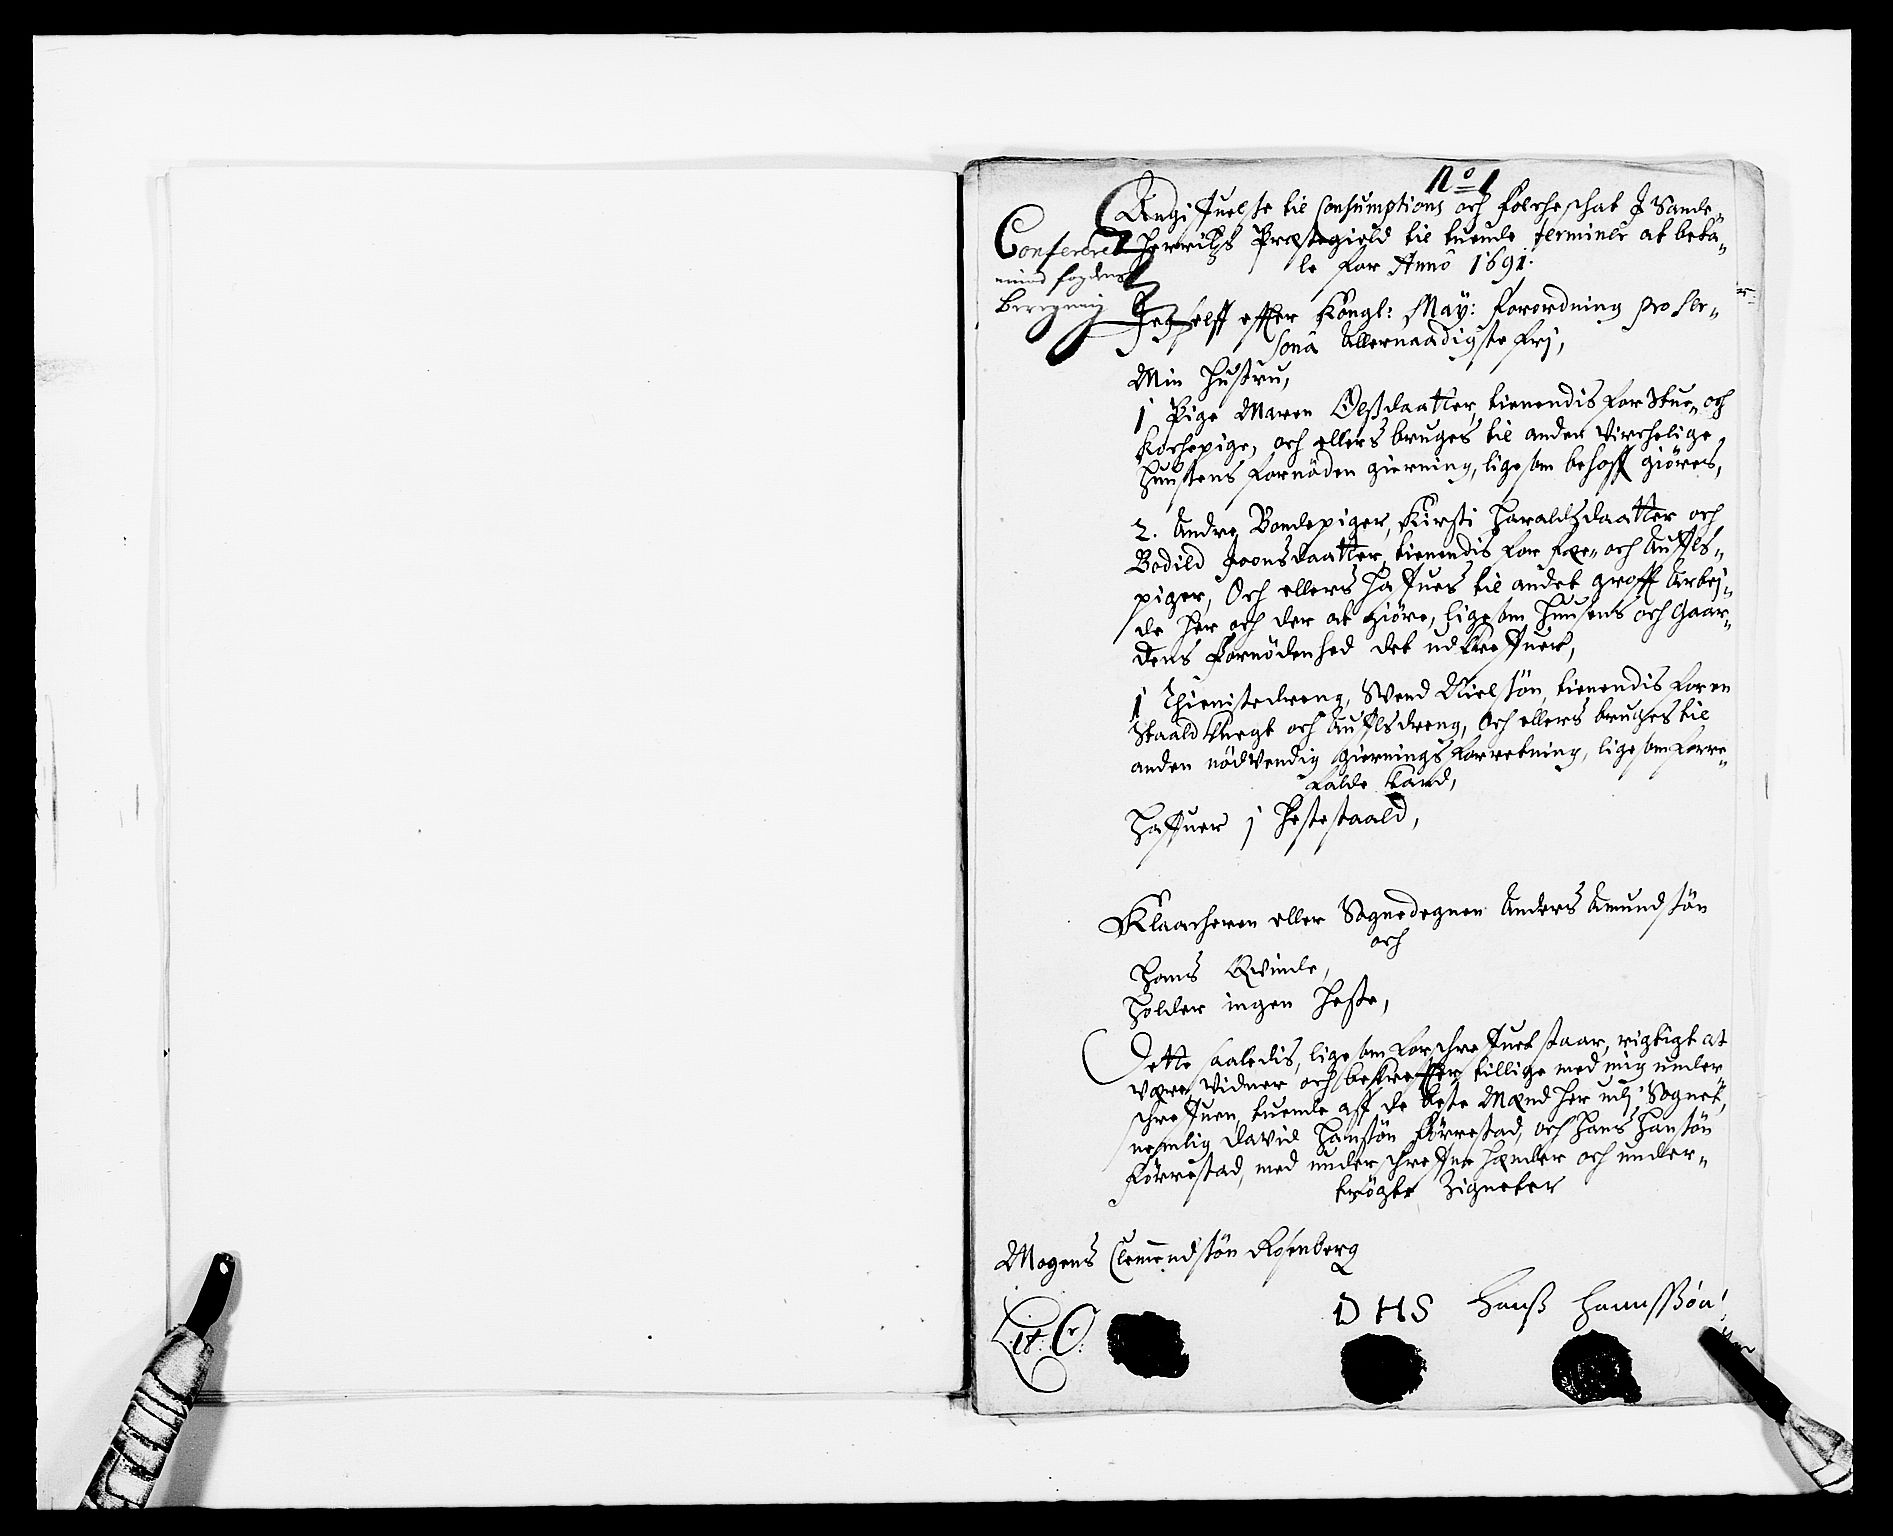 No 1
Angifuelse til Consumptions och Folcheschat J Sande„
herritzs Præstegield til tuende Terminer at beta„
le for Anno 1691.
Confereret
med fogdens
Beregning
Jeg self effter Kongl: May: forordning pro Per„
sona allernaadigste frj,
Min Hustru,
1 Pige Maren Olsdaatter, tienendis for Stue„ och
Kochepige, och ellers bruges til anden virchelige
Huusens fornöden gierning, ligesom behoff giöres,
2. Andre Bondepiger, Kirsti Haraldsdaatter och
Bodild Joensdaatter, tienendis for fæe„ och Auffls„
piger, Och ellers haffues til andet groft Arbej„
de her och der at giöre, ligesom Huusens och Gaar„
dens fornödenhed det udkreffuer,
1 Thienistedreng, Svend Nielsön, tienendis for en
Staald Knegt och Aufflsdreng, Och ellers bruges til
anden nödvendig giernings forretning, ligesom forre„
falde kand,
Haffuer j Hestestaald,
Klaacheren eller Sognedegnen Anders Amundsön
och
Hans Qvinde,
Holder ingen Heste,
Dette saaledis, ligesom forschreffuet staar, rigtigt at
være, vidner och bekreffter tillige med mig under
schreffuen, tuende aff de beste Mænd her udj Sognet,
nemlig David Hansön Förrestad, och Hans Hansön
Förrestad, med underschreffne Hænder och under„
trögte Zigneter
Mogens Clemendsön Rosenberg
D H S Hanss Hanssøn
Lit: C: